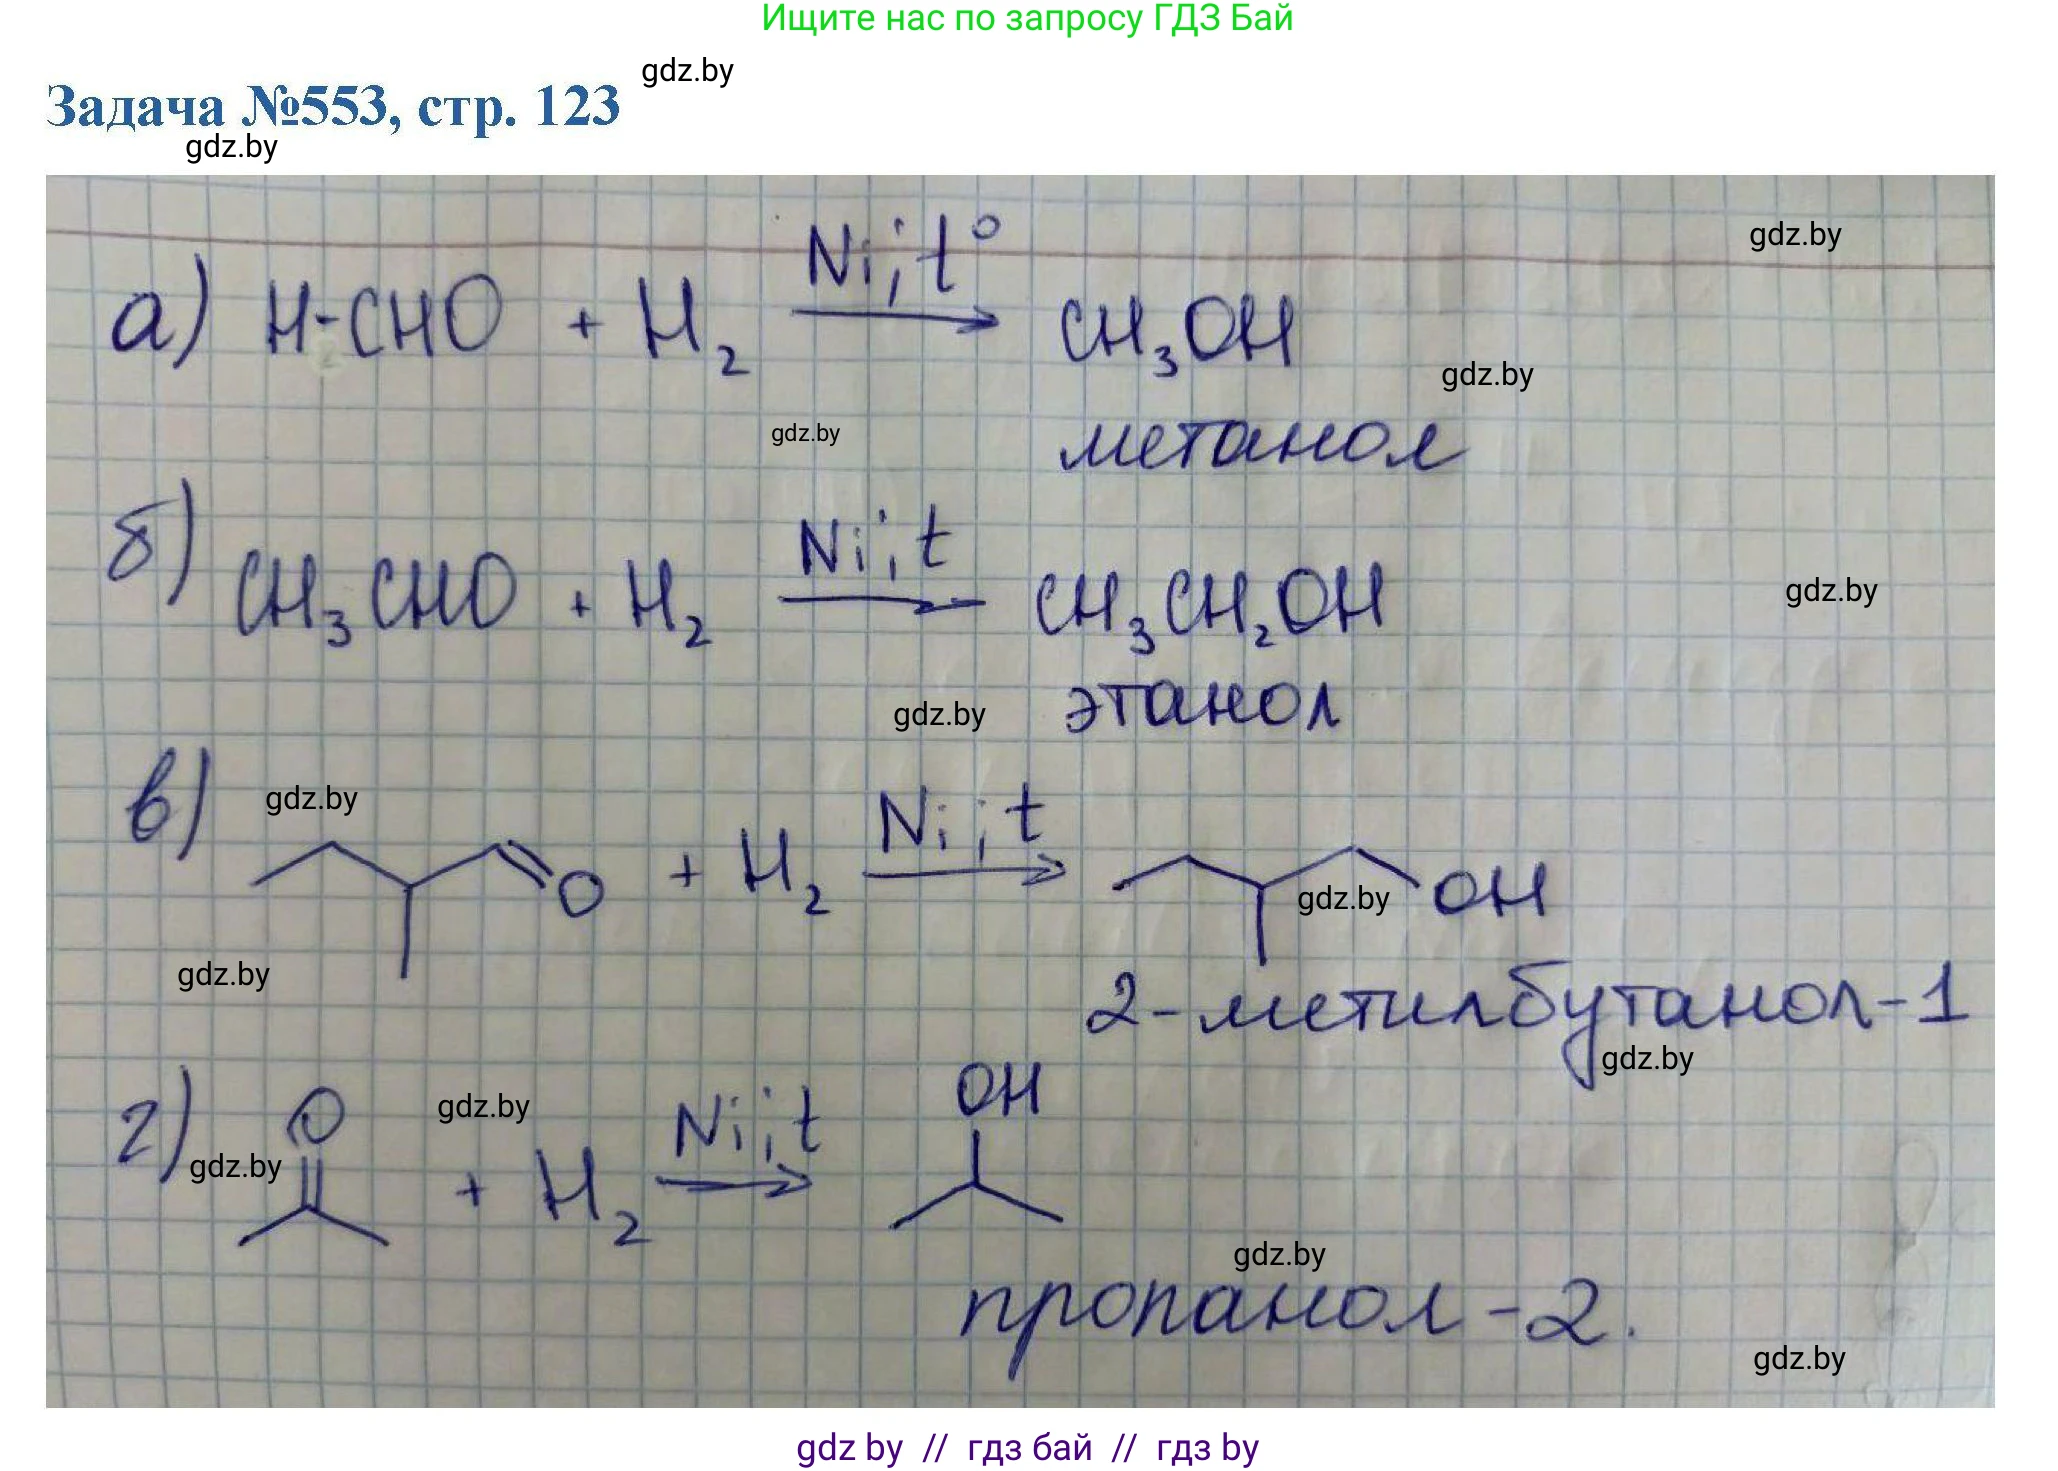 Ищите нас по запросу ГДЗ Бай
gdz.by
Задача №553, стр. 123
gdz.by
gdz.by
а) H-CHO + H₂ Ni, t° → CH₃OH
gdz.by
gdz.by
метанол
б) CH₃CHO + H₂ Ni, t → CH₃CH₂OH
gdz.by
gdz.by
этанол
в)
gdz.by
O + H₂ Ni, t → OH
gdz.by
gdz.by
2-метилбутанол-1
gdz.by
г) O + H₂ Ni, t → OH
gdz.by
gdz.by
gdz.by
пропанол-2.
gdz.by
gdz by // гдз бай // гдз by